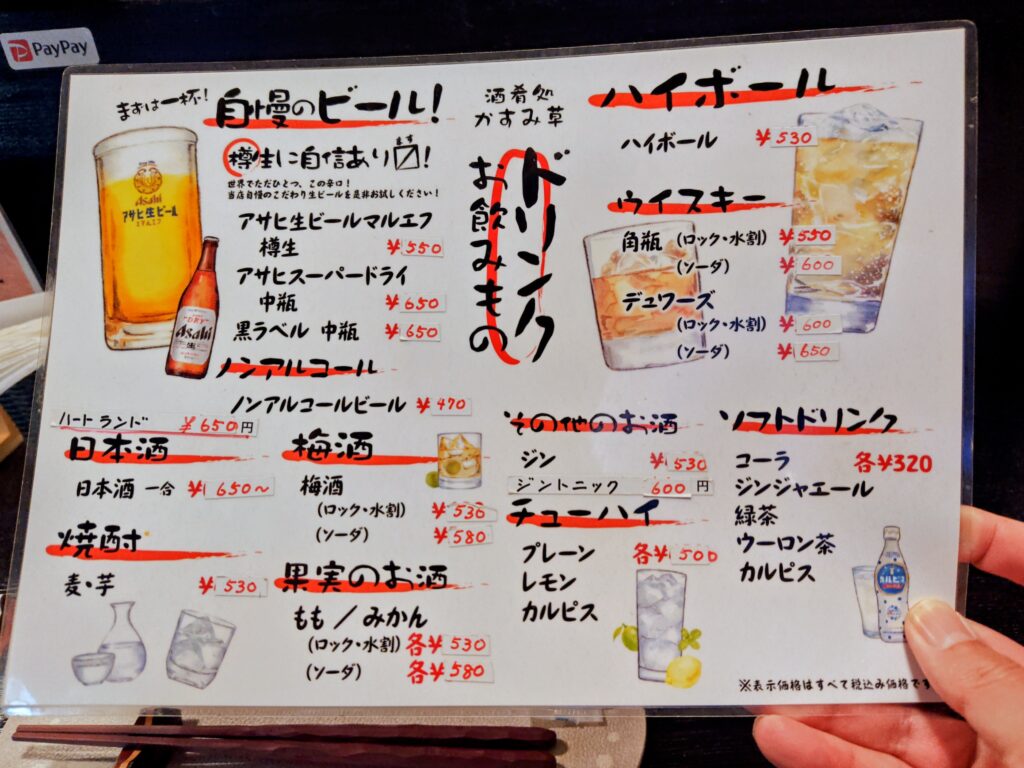 PayPay
まずは一杯!
自慢のビール!
樽生に自信あり〼!
ます
世界でただひとつ、この辛口!
当店自慢のこだわり生ビールを是非お試しください!
アサヒ生ビールマルエフ
樽生 ¥550
アサヒスーパードライ
中瓶 ¥650
黒ラベル 中瓶 ¥650
Asahi
アサヒ生ビール
DRY
Asahi
生
ノンアルコール
ノンアルコールビール ¥470
ハートランド ¥650円
酒肴処
かすみ草
ドリンク
お飲みもの
ハイボール
ハイボール ¥530
ウイスキー
角瓶 (ロック・水割) ¥550
(ソーダ) ¥600
デュワーズ
(ロック・水割) ¥600
(ソーダ) ¥650
日本酒
日本酒 一合 ¥650~
焼酎
麦・芋 ¥530
梅酒
梅酒
(ロック・水割) ¥530
(ソーダ) ¥580
果実のお酒
もも/みかん
(ロック・水割) 各¥530
(ソーダ) 各¥580
その他のお酒
ジン ¥530
ジントニック 600円
チューハイ
プレーン 各¥500
レモン
カルピス
ソフトドリンク
コーラ 各¥320
ジンジャエール
緑茶
ウーロン茶
カルピス
カルピス
※表示価格はすべて税込み価格です